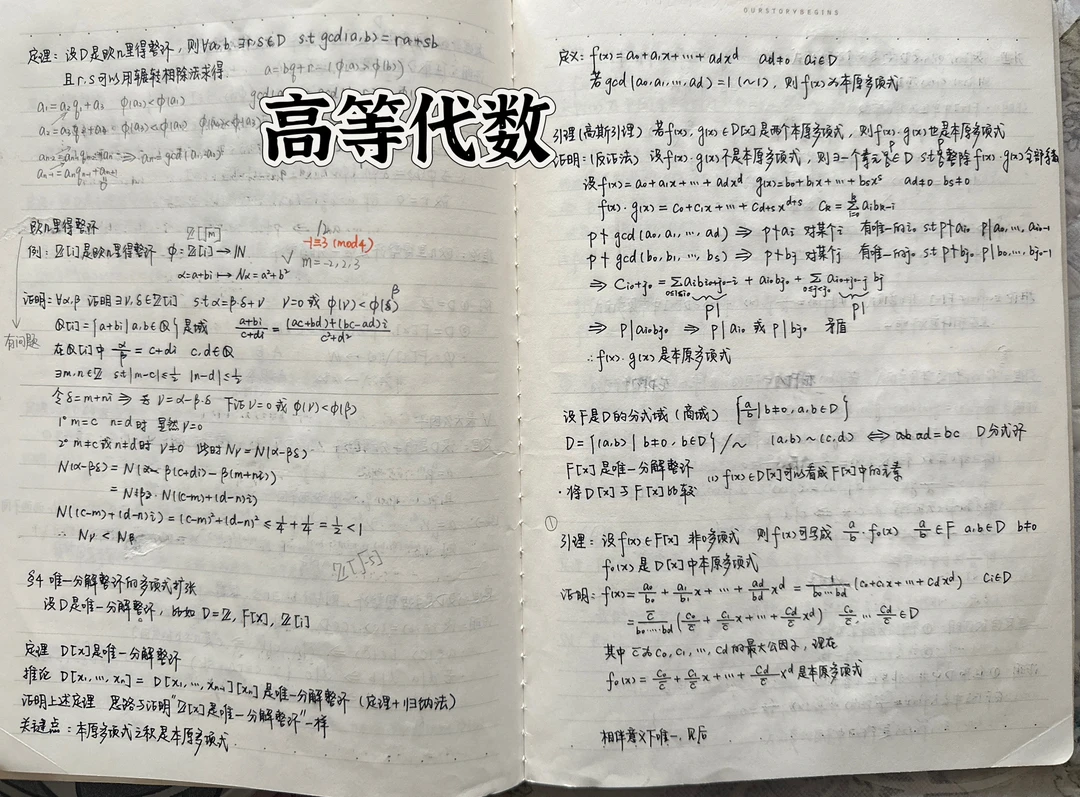 OURSTORYBEGINS
高等代数
定理：设D是欧几里得整环，则∀a,b, ∃r,s∈D s.t gcd(a,b) = ra+sb
且r.s可以用辗转相除法求得.
a₁=a₂q₁+a₃ φ(a₃)<φ(a₂)
欧几里得整环
例：ℤ[i]是欧几里得整环 φ: ℤ[i] → ℕ
α=a+bi ↦ Nα=a²+b²
ℤ[√m]
-1≡3 (mod4)
√ m=-2,2,3
证明：∀α,β 证明∃γ,δ∈ℤ[i] s.t α=β·δ+γ γ=0 或 φ(γ)<φ(β)
有问题
ℚ[i]={a+bi | a,b∈ℚ}是域 (a+bi)/(c+di) = ((ac+bd)+(bc-ad)i)/(c²+d²)
在ℚ[i]中 α/β = c+di c,d∈ℚ
∃m,n∈ℤ s.t |m-c|≤½ |n-d|≤½
令δ=m+ni ⇒ γ=α-β·δ 下证γ=0 或 φ(γ)<φ(β)
1° m=c n=d时 显然γ=0
2° m≠c或n≠d时 γ≠0 此时Nγ=N(α-βδ)
N(α-βδ) = N(β(c+di)-β(m+ni))
= Nβ·N((c-m)+(d-n)i)
N((c-m)+(d-n)i)=(c-m)²+(d-n)² ≤ ¼+¼=½<1
∴ Nγ < Nβ
ℤ[√-5]
§4 唯一分解整环的多项式扩张
设D是唯一分解整环，比如D=ℤ, F[x], ℤ[i]
定理 D[x]是唯一分解整环
推论 D[x₁,…,xₙ] = D[x₁,…,xₙ₋₁][xₙ]是唯一分解整环（定理+归纳法）
证明上述定理 思路与证明"ℤ[x]是唯一分解整环"一样
关键点：本原多项式之积是本原多项式.
定义：f(x)=a₀+a₁x+…+a_d x^d a_d≠0 aᵢ∈D
若gcd(a₀,a₁,…,a_d)=1(~1)，则f(x)为本原多项式
引理(高斯引理) 若f(x), g(x)∈D[x]是两个本原多项式，则f(x)·g(x)也是本原多项式
证明：(反证法) 设f(x)·g(x)不是本原多项式，则∃一个素元p∈D s.t p整除f(x)·g(x)全部系数
设f(x)=a₀+a₁x+…+a_d x^d g(x)=b₀+b₁x+…+b_s x^s a_d≠0 b_s≠0
f(x)·g(x)=c₀+c₁x+…+c_{d+s}x^{d+s} c_k=∑_{i=0}^{k} aᵢb_{k-i}
p∤gcd(a₀,a₁,…,a_d) ⇒ p∤aᵢ 对某个i 有唯一的i₀ s.t p∤a_{i₀} p|a₀,…,a_{i₀-1}
p∤gcd(b₀,b₁,…,b_s) ⇒ p∤bⱼ 对某个j 有唯一的j₀ s.t p∤b_{j₀} p|b₀,…,b_{j₀-1}
⇒ c_{i₀+j₀}=∑_{0≤i<i₀} aᵢb_{i₀+j₀-i} + a_{i₀}b_{j₀} + ∑_{0≤j<j₀} a_{i₀+j₀-j}bⱼ
p| p|
⇒ p|a_{i₀}b_{j₀} ⇒ p|a_{i₀} 或 p|b_{j₀} 矛盾
∴f(x)·g(x)是本原多项式
设F是D的分式域（商域） {a/b | b≠0, a,b∈D}
D={(a,b) | b≠0, b∈D}/~ (a,b)~(c,d) ⇔ ad=bc D分式环
F[x]是唯一分解整环 (1) f(x)∈D[x]可以看成F[x]中的元素
·将D[x]与F[x]比较
①
引理：设f(x)∈F[x] 非0多项式 则f(x)可写成 a/b·f₀(x) a/b∈F a,b∈D b≠0
f₀(x)是D[x]中本原多项式
证明：f(x)=a₀/b₀+a₁/b₁x+…+a_d/b_d x^d = 1/(b₀…b_d) (c₀+c₁x+…+c_d x^d) cᵢ∈D
= c̄/(b₀…b_d) (c₀/c̄+c₁/c̄x+…+c_d/c̄ x^d) c₀/c̄,…c_d/c̄∈D
其中c̄为c₀,c₁,…,c_d的最大公因子，现在
f₀(x)=c₀/c̄+c₁/c̄x+…+c_d/c̄ x^d是本原多项式
相伴意义下唯一，见后